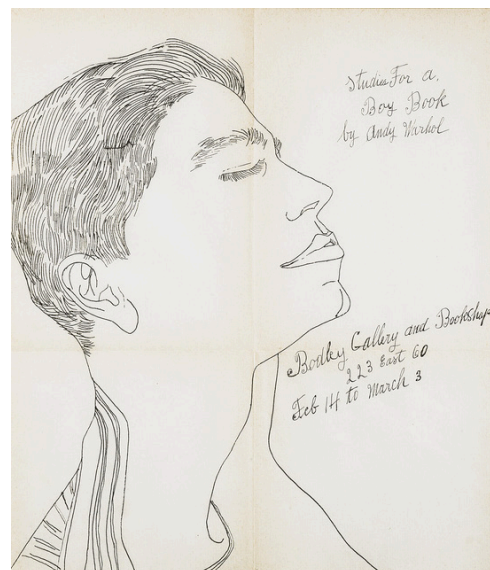 Studies For a.
Boy Book
by Andy Warhol
Bodley Gallery and Bookshop
223 East 60
Feb 14 to March 3